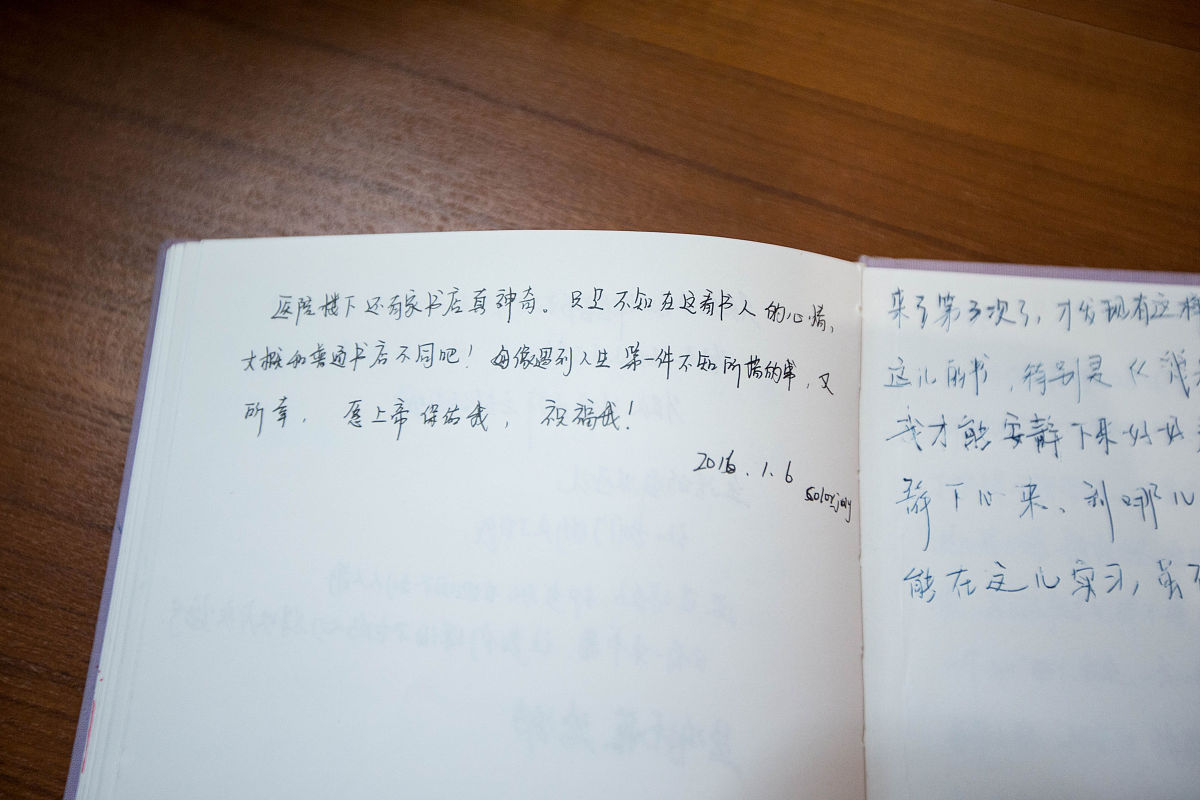 医院楼下还有家书店真神奇。只是不知在这看书人的心情,
大概和普通书店不同吧! 遇到人生第一件不知所措的事,又
所幸, 愿上帝保佑我, 祝福我!
2016.1.6
来了第三次了,才发现有这
这儿的书,特别是《我
我才能安静下来好好
静下心来、到哪儿
能在这儿实习,虽